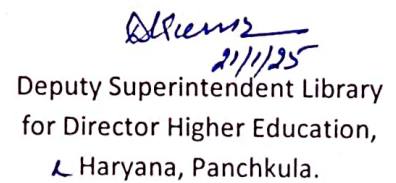 21/1/25
Deputy Superintendent Library
for Director Higher Education,
Haryana, Panchkula.